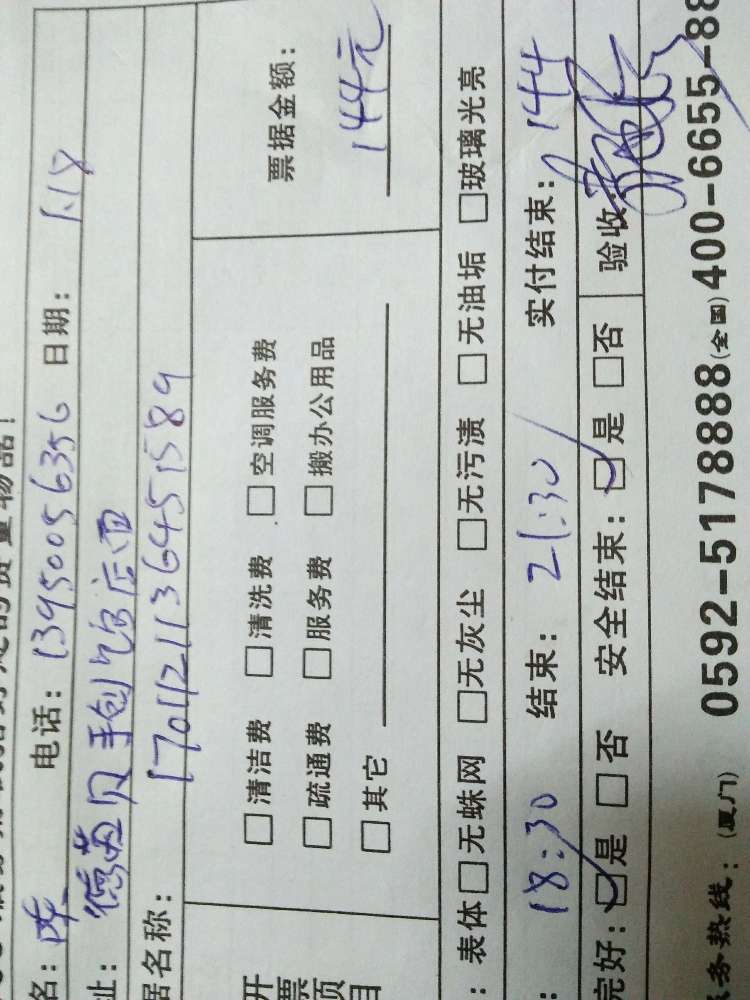 名：陈 电话：13950056356 日期：1.18
址：德茵贝手创馆后面
据名称：1701121136451589
开票项目
□清洁费 □清洗费 □空调服务费
□疏通费 □服务费 □搬办公用品
□其它
票据金额：
144元
：表体□无蛛网 □无灰尘 □无污渍 □无油垢 □玻璃光亮
：18:30 结束：21:30 实付结束：144
完好：☑是 □否 安全结束：☑是 □否 验收
务热线：(厦门) 0592-5178888(全国)400-6655-88